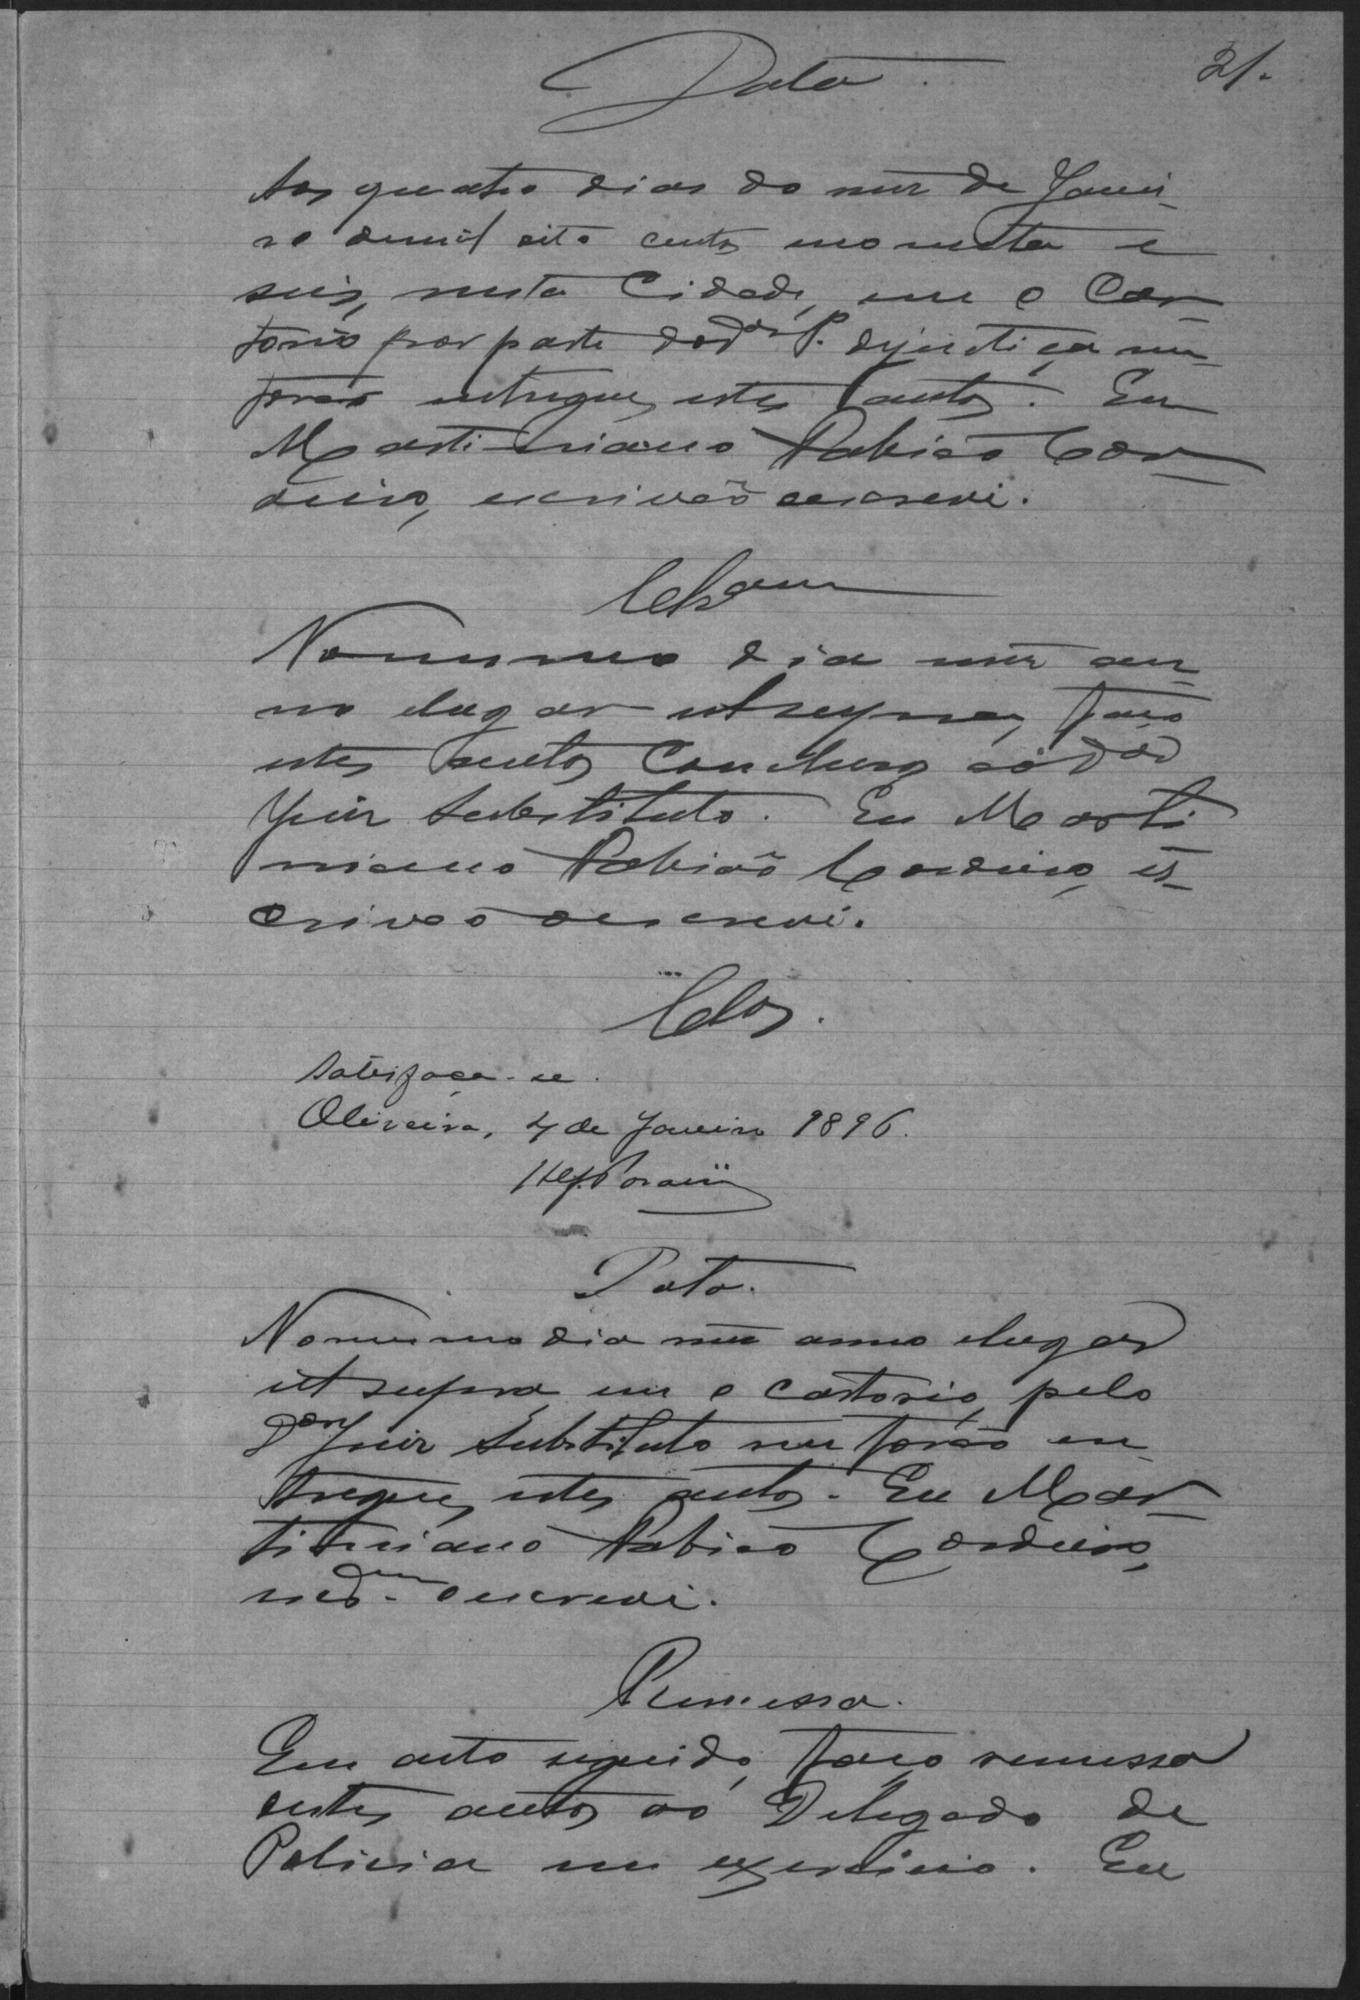 Data
21.
Aos quatro dias do mez de Janei-
ro de mil oito centos e noventa e
seis, nesta Cidade, em o Car-
torio por parte do dor P. de justiça me
forão entregues estes autos. Eu
Martiniano Fabião Cor-
deiro, escrivão o escrevi.
Clsam
No mesmo dia mez an-
no e lugar ut supra, faço
estes autos conclusos ao dor
Juiz Substituto. Eu Marti
niano Fabião Cordeiro, es-
crivão o escrevi.
Clos.
Satisfaça-se.
Oliveira, 4 de Janeiro 1896.
Data.
No mesmo dia mez anno e lugar
ut supra em o cartorio, pelo
Dor Juiz Substituto me forão en
tregues estes autos. Eu Mar-
tiniano Fabião Cordeiro,
o escrevi.
Remessa.
Em acto seguido, faço remessa
destes autos ao Delegado de
Policia em exercicio. Eu